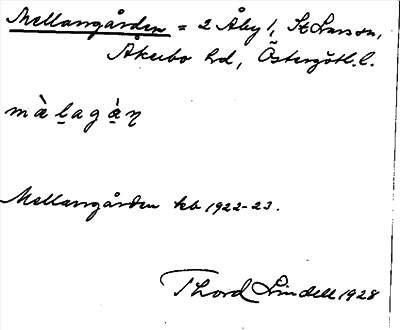 Mellangården = 2 Åby 1, St Larson,
Åkerbo hd, Östergötl. l.
mὰl̲agὰ̲ɳ
Mellangården kb 1922-23.
Thord Lindell 1928